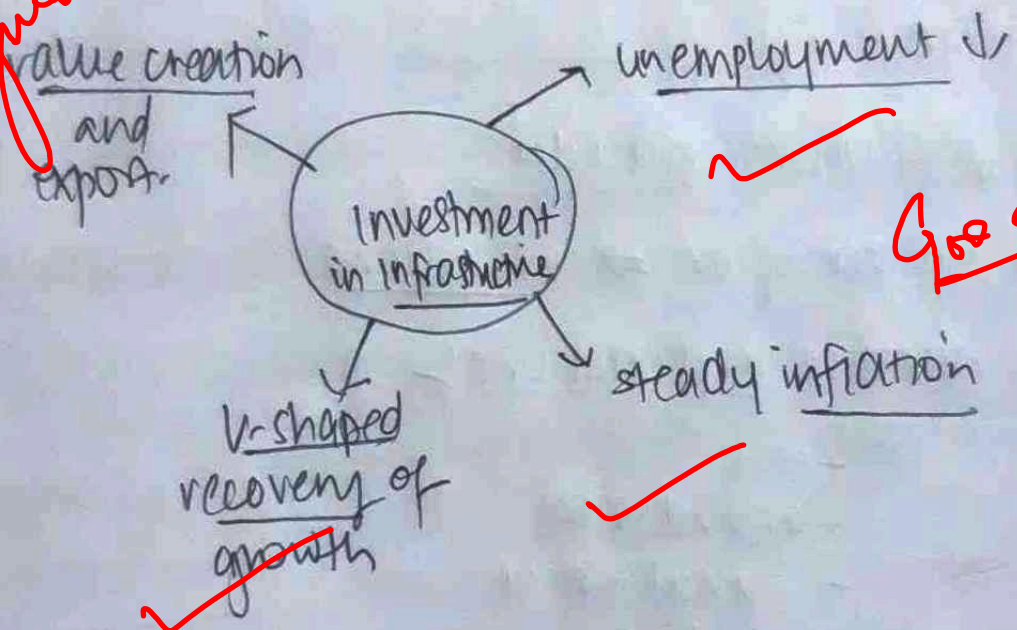 value creation
and
export.
unemployment ↓
Investment
in Infrastructure
steady inflation
V-shaped
recovery of
growth